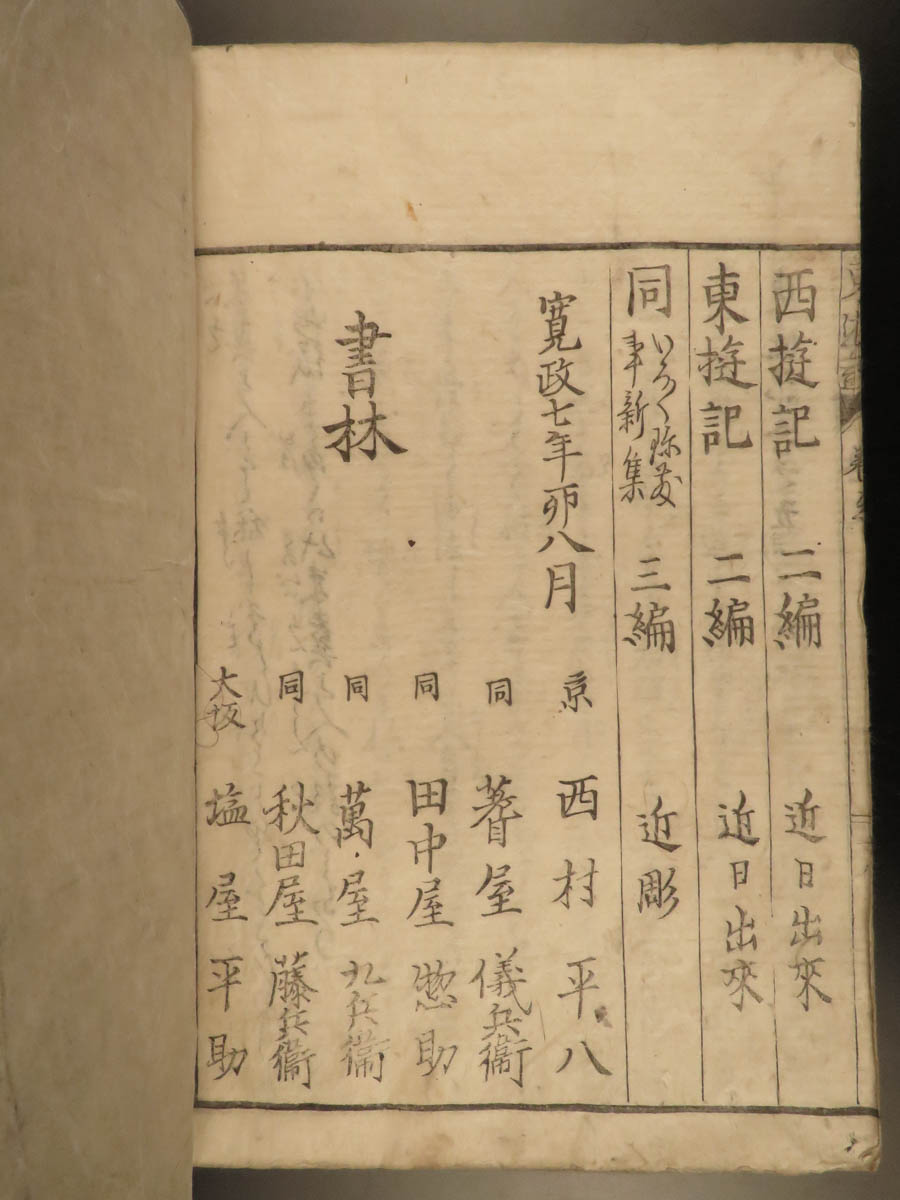 西遊記 二編 近日出來
東遊記 二編 近日出來
同 いろ〱珍敷事新集 三編 近彫
寛政七年卯八月
書林
京 西村平八
同 蓍屋儀兵衞
同 田中屋惣助
同 萬屋九兵衞
同 秋田屋藤兵衞
大坂 塩屋平助